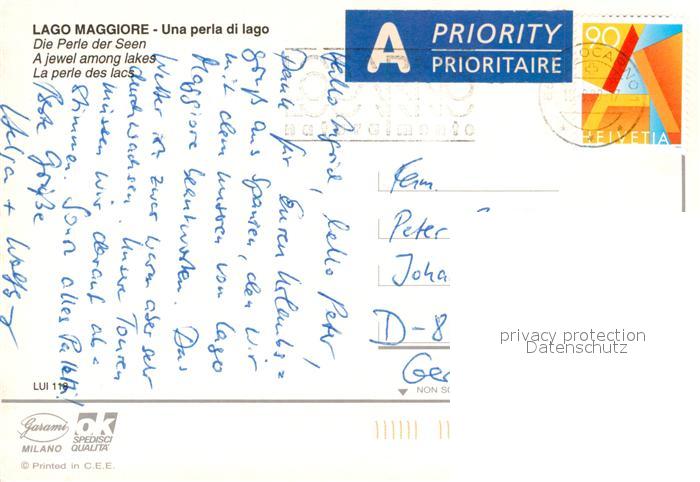 LAGO MAGGIORE - Una perla di lago
Die Perle der Seen
A jewel among lakes
La perle des lacs
A PRIORITY
PRIORITAIRE
90
HELVETIA
LOCARNO 1
Hallo Ingrid, hallo Peter,
Dank für Euren Urlaubs=
gruß aus Spanien, den wir
mit dem unseren vom Lago
Maggiore beantworten. Das
Wetter ist zwar warm aber sehr
durchwachsen. Unsere Touren
müssen wir darauf ab=
stimmen. Sonst alles Paletti!
Beste Grüße
Helga +
Fam.
Peter
Joha
D-8
Ger
privacy protection
Datenschutz
LUI 118
NON SC
Garami
MILANO
ok
SPEDISCI
QUALITÀ
© Printed in C.E.E.